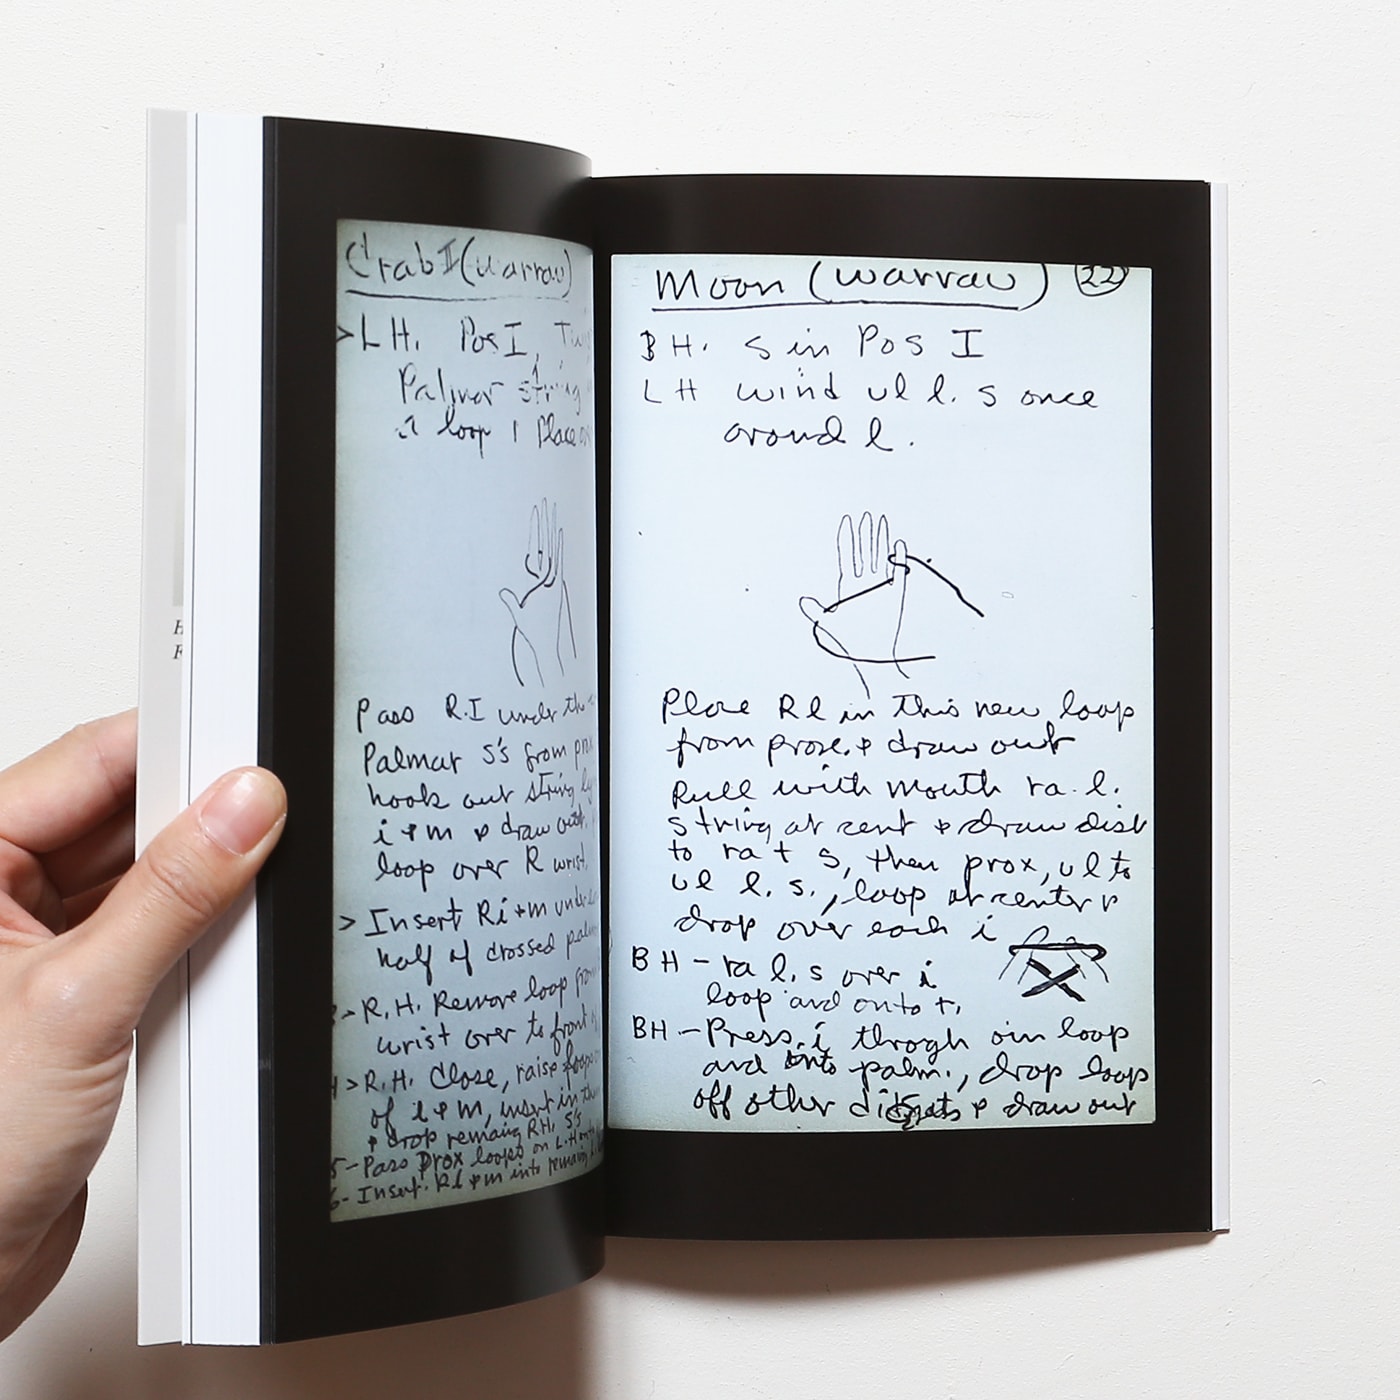 H
F
Crab I (Warrau)
> L H. Pos I,
Palmar string
loop 1 Place
Pass R.I under the
Palmar S's from
hook out string
i + m & draw out,
loop over R wrist.
> Insert Ri + m under
half of crossed
R.H. Remove loop from
wrist over to front
> R.H. Close, raise
of i + m, insert in
& drop remaing RH. S's
5 - Pass prox loops on L.H
6 - Insert. Rl + m into
Moon (Warrau) 22
B H. S in Pos I
L H wind ul l. s once
around l.
Place R l in this new loop
from prox. & draw out
Pull with mouth ra. l.
string at cent & draw dist
to ra t s, then prox, ul to
ul l. s., loop at center &
drop over each i
B H - ra l. s over i
loop and onto t.
BH - Press i throgh oin loop
and into palm., drop loop
off other & draw out